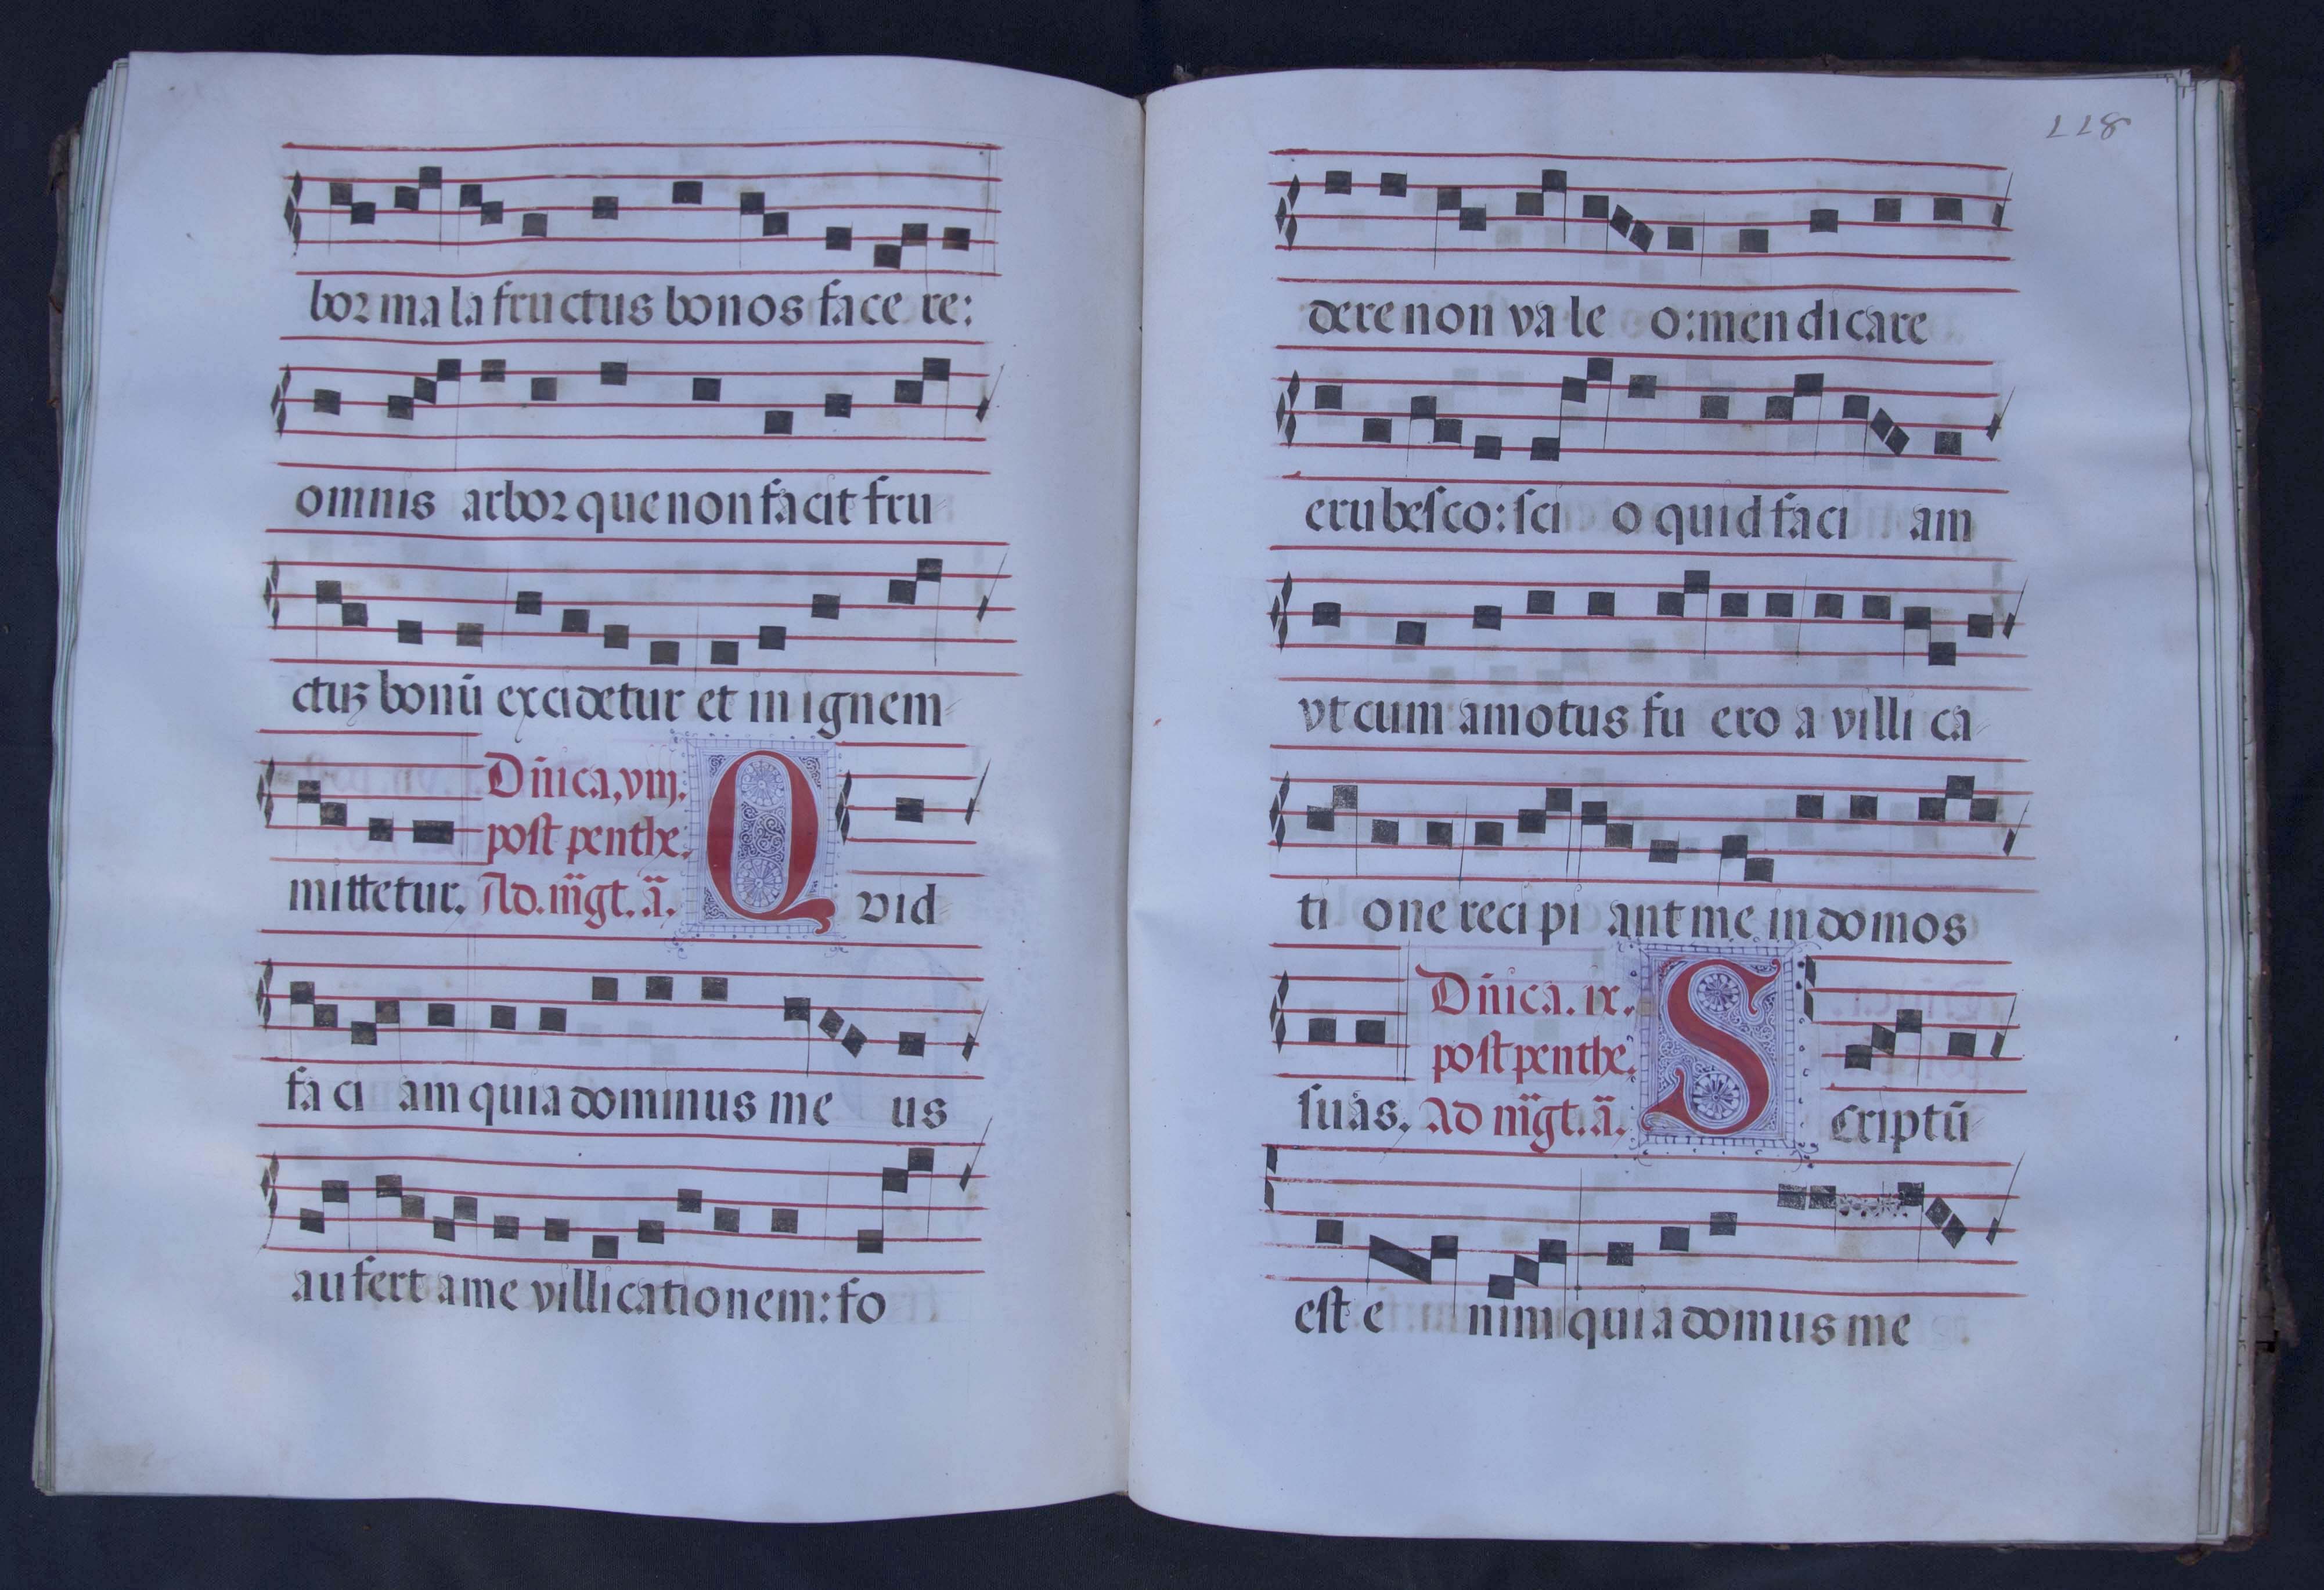 bor ma la fructus bonos face re:
omnis arbor que non facit fru
ctuz bonū excidetur et in ignem
Dn̄ica, viij.
post penthe.
mittetur. Ad. m̄gt. ā. Q vid
fa ci am quia dominus me us
au fert a me villicationem: fo
118
dere non va le o: men di care
erubesco: sci o quid faci am
vt cum amotus fu ero a villi ca
ti one reci pi ant me in domos
Dn̄ica. ix.
post penthe.
suas. Ad m̄gt. ā. S criptū
est e nim quia domus me